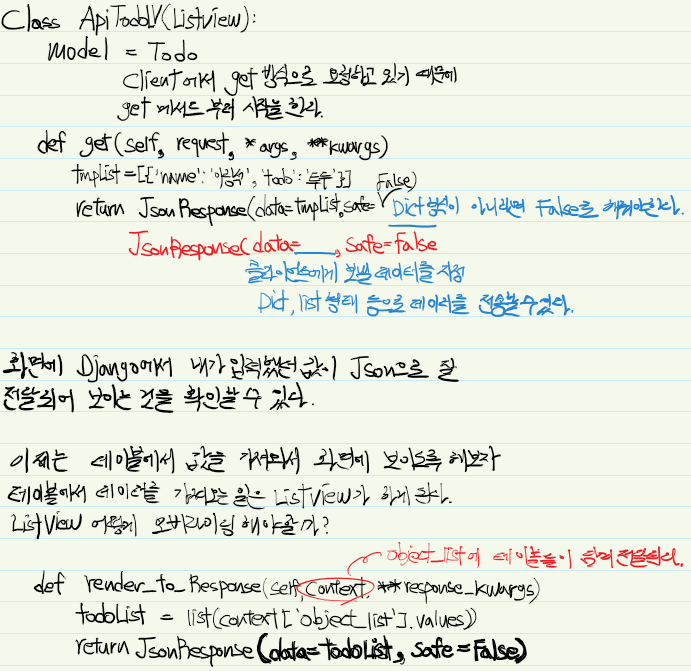 Class ApiTodoLV(Listview):
model = Todo
Client에서 get 방식으로 요청하고 있기 때문에
get 메서드 부터 시작을 한다.
def get(self, request, *args, **kwargs)
tmpList=[{'name':', 'todo':'}]
False)
return JsonResponse(data=tmpList, safe= Dict 형식이 아니라면 False를 해줘야한다.
JsonResponse(data=___, Safe=False
클라이언트에게 보낼 데이터를 지정
Dict, list 형태 등으로 데이터를 전송할 수 있다.
화면에 Django에서 내가 입력했던 값이 Json으로 잘
전달되어 보이는 것을 확인할 수 있다.
이제는 테이블에서 값을 가져와서 화면에 보이도록 해보자
테이블에서 데이터를 가져오는 일은 ListView가 하게 된다.
ListView 어떻게 오버라이딩 해야할까?
object_list에 테이블들이 담겨 전달된다.
def render_to_Response(self, context, **response_kwargs)
todoList = list(context['object_list'].values())
return JsonResponse(data=todoList, safe=False)